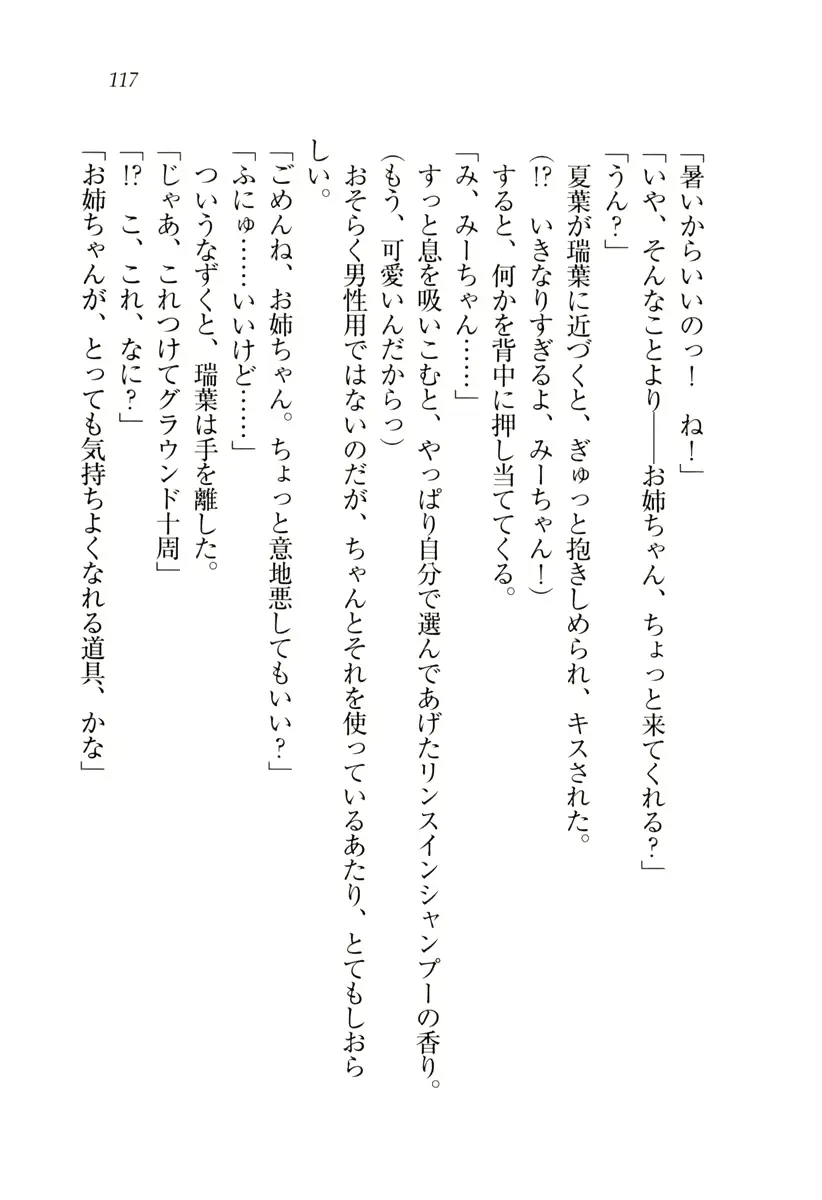 117
「暑いからいいのっ！　ね！」
「いや、そんなことより――お姉ちゃん、ちょっと来てくれる？」
「うん？」
夏葉が瑞葉に近づくと、ぎゅっと抱きしめられ、キスされた。
（!?　いきなりすぎるよ、みーちゃん！）
すると、何かを背中に押し当ててくる。
「み、みーちゃん……」
すっと息を吸いこむと、やっぱり自分で選んであげたリンスインシャンプーの香り。
（もう、可愛いんだからっ）
おそらく男性用ではないのだが、ちゃんとそれを使っているあたり、とてもしおら
しい。
「ごめんね、お姉ちゃん。ちょっと意地悪してもいい？」
「ふにゅ……いいけど……」
ついうなずくと、瑞葉は手を離した。
「じゃあ、これつけてグラウンド十周」
「!?　こ、これ、なに？」
「お姉ちゃんが、とっても気持ちよくなれる道具、かな」